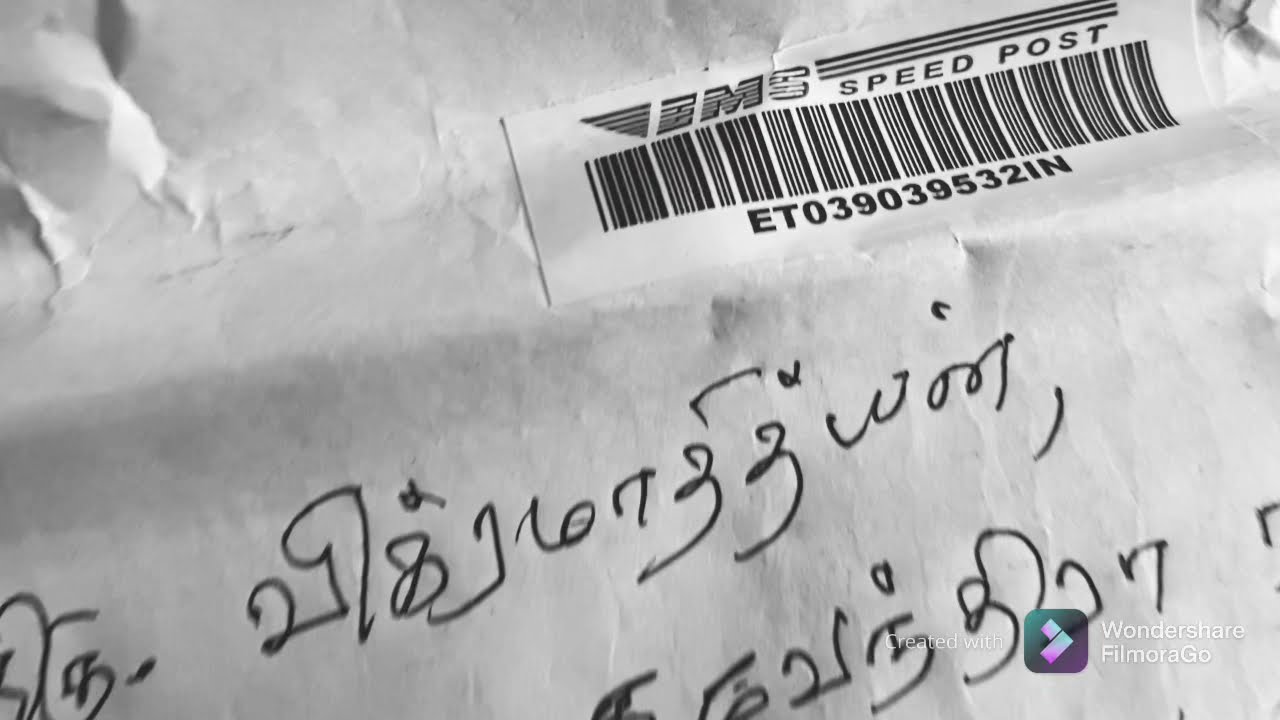 EMS SPEED POST
ET039039532IN
விக்ரமாதித்யன்,
Created with Wondershare FilmoraGo